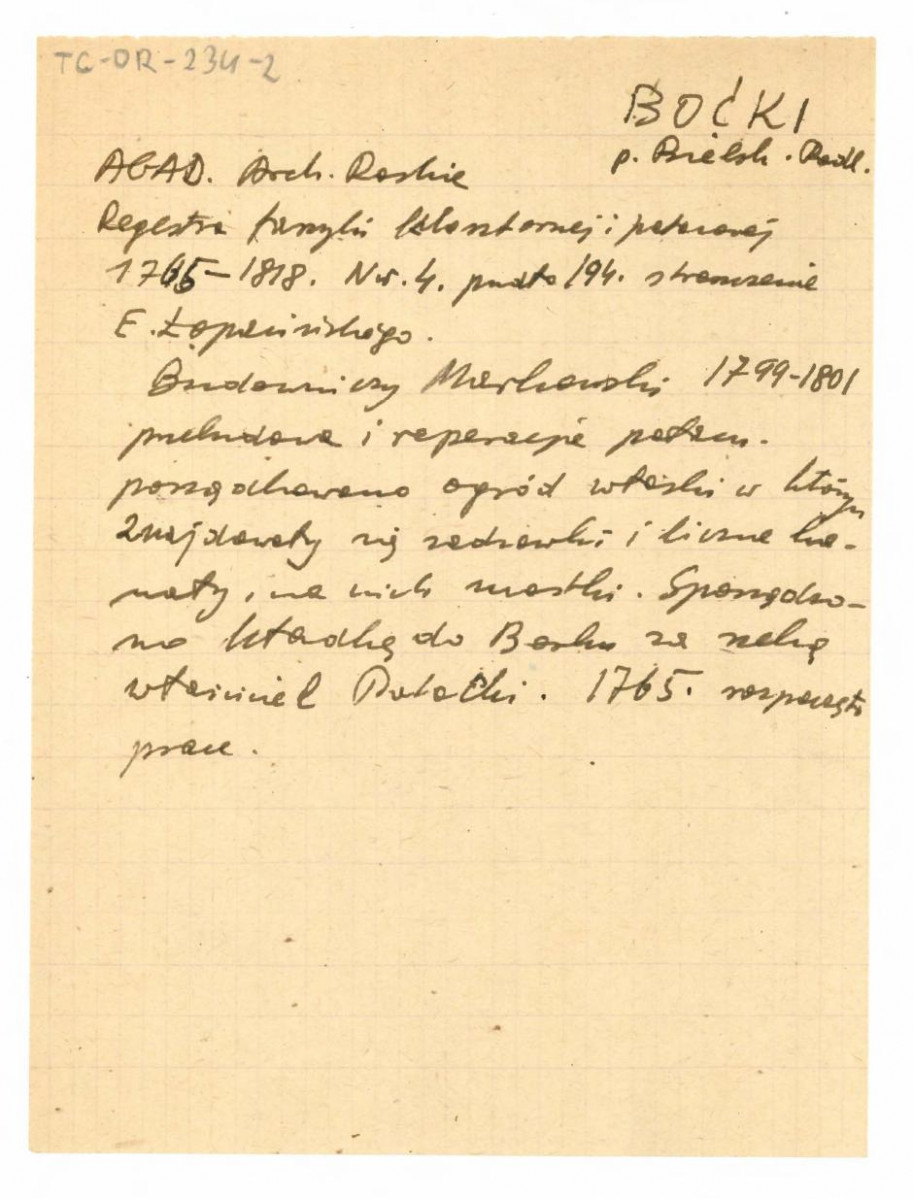 TG-DR-234-2
BOĆKI
p. Bielsk. Podl.
AGAD. Arch. Roskie
Regestra familii klasztornej i pałacowej
1765–1818. Nr. 4. pudło 194. streszczenie
E. Łopacińskiego.
Budowniczy Markowski 1799-1801
przebudowa i reperacje pałacu.
porządkowano ogród włoski w którym
znajdowały się sadzawki i liczne ka-
nały, na nich mostki. Sporządzo-
no kładkę do Boćku za rzekę
właściciel Potocki. 1765. rozpoczęto
prace.